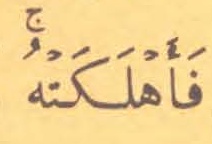 فَأَهْلَكَتْهُ ۚ